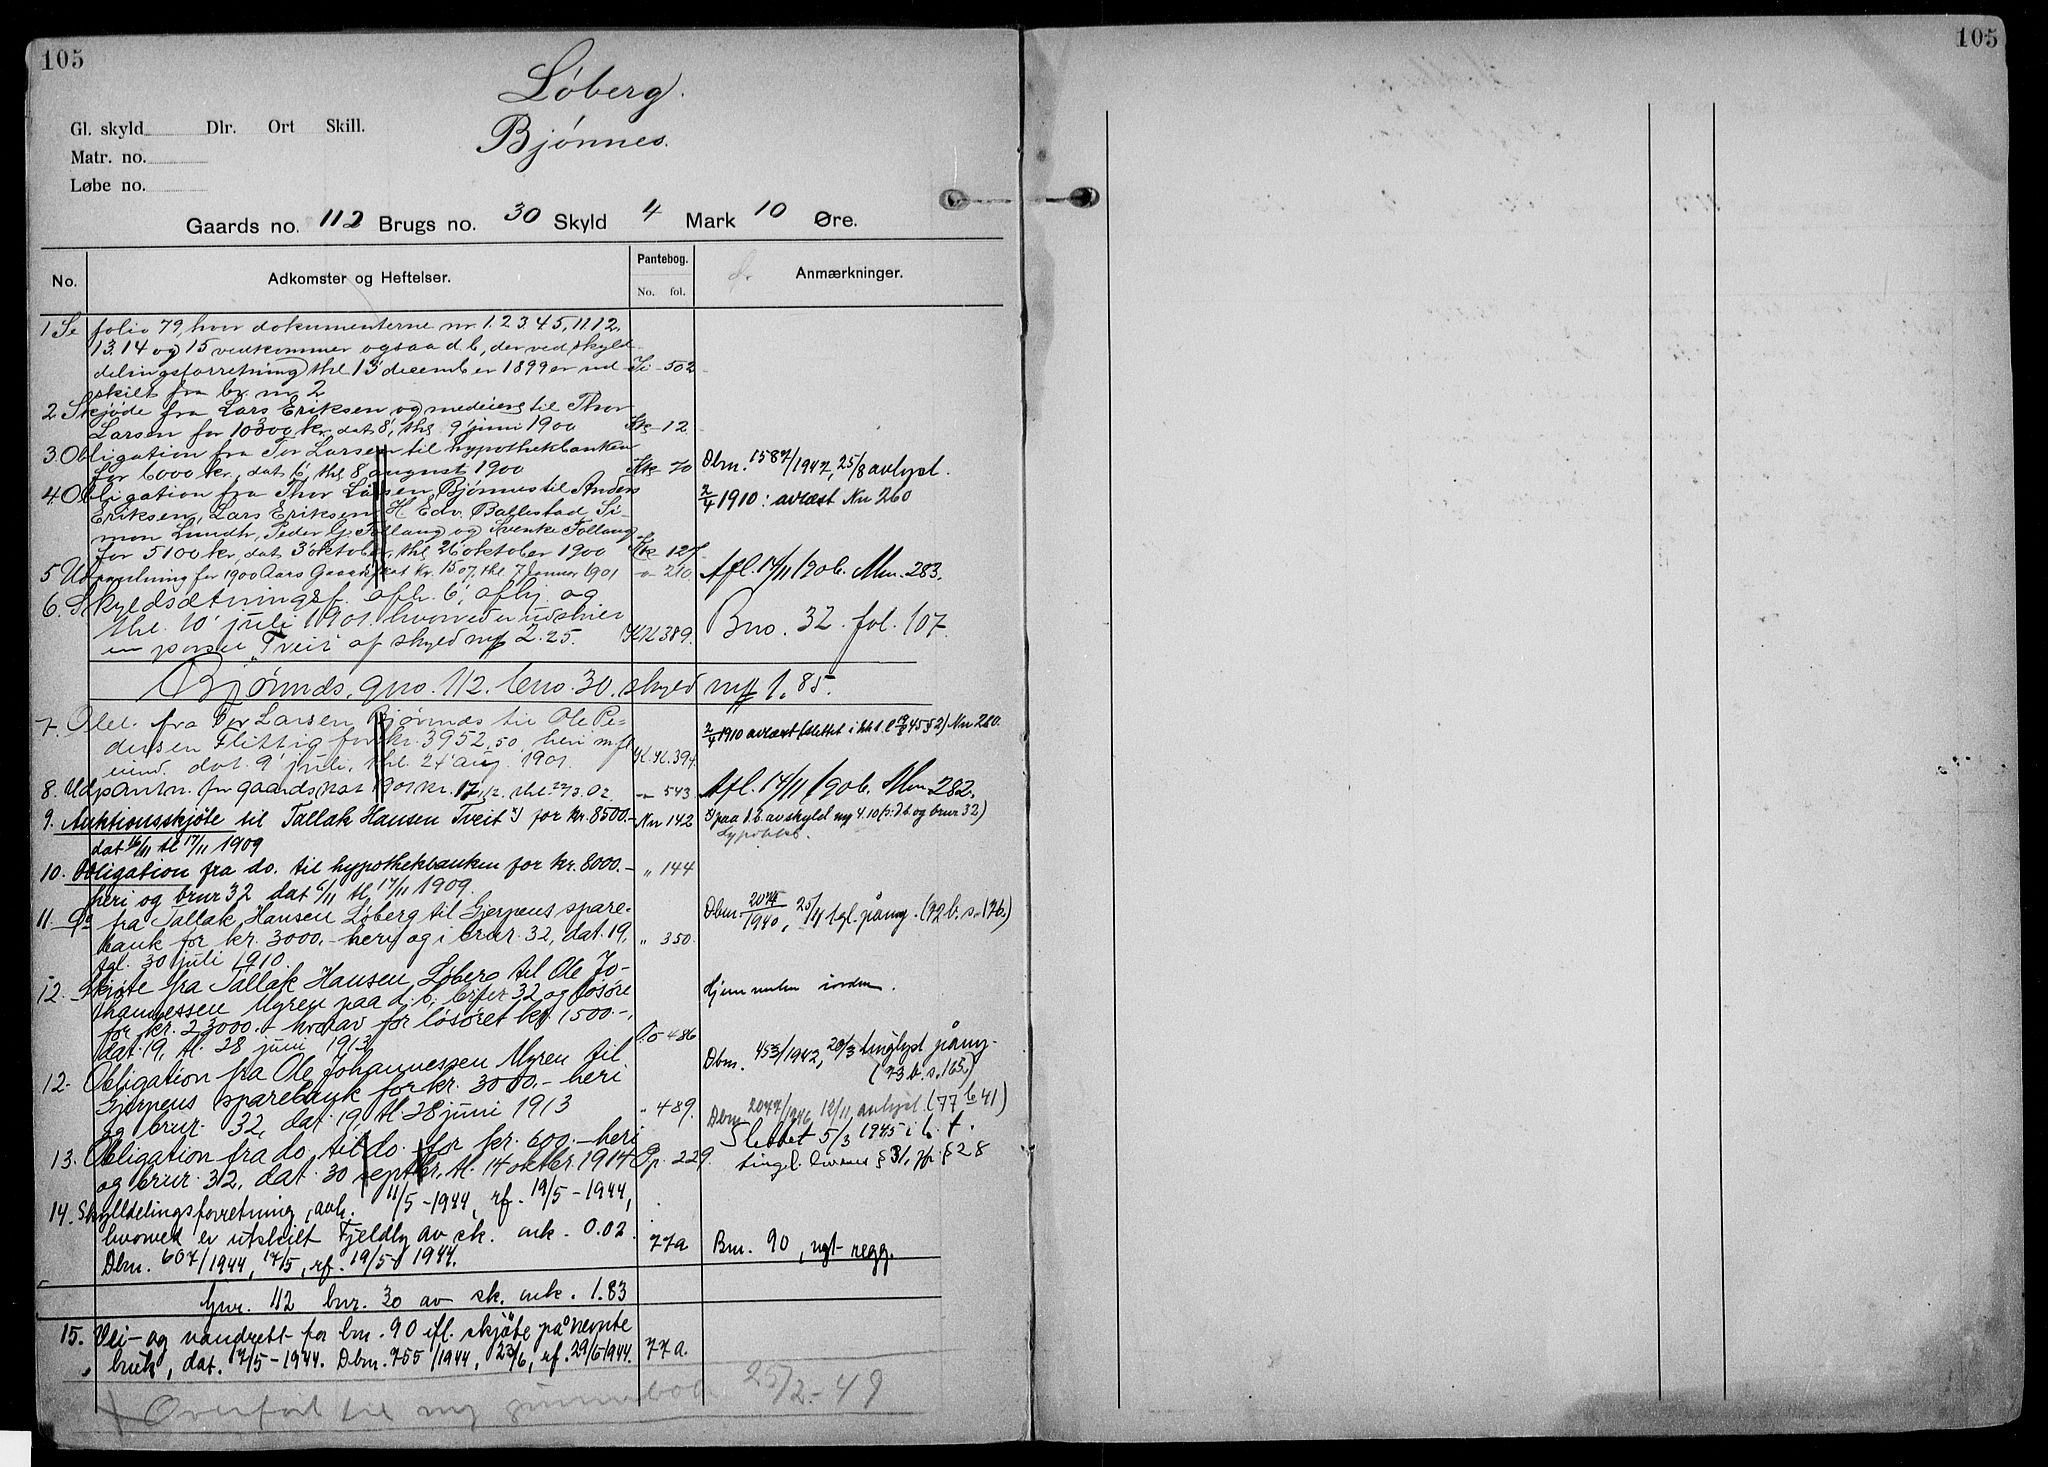 105
105
Løberg.
Bjønnes.
Gl. skyld Dlr. Ort Skill.
Matr. no.
Løbe no.
Gaards no. 112 Brugs no. 30 Skyld 4 Mark 10 Øre.
No. Adkomster og Heftelser. Pantebog. No. fol. Anmærkninger.
1 Se folio 79, hvor dokumenterne nr. 1. 2 3. 4 5, 11. 12,
13. 14 og 15 vedkommer ogsaa d. b, der ved skyld-
delingsforretning thl 13' december 1899 er ud- Ii - 502
skilt fra br. nr. 2
2 Skjøde fra Lars Eriksen og medeiere til Thor
Larsen for 10300 kr, dat 8', thl 9' juni 1900 Kk - 12
3 Obligation fra Tor Larsen til hypothekbanken
for 6000 kr, dat 6', thl 8 august 1900 Kk - 70 Dbnr. 1587/1947, 25/8 avlyst.
4 Obligation fra Thor Larsen Bjønnes til Anders 2/4 1910: avlæst Nn 260
Eriksen, Lars Eriksen, H Edv. Ballestad, Si-
mon Lundh, Peder G. Follaug og Svenke Follaug
for 5100 kr, dat 3' oktober, thl 26' oktober 1900 Kk - 127
5 Udpantning for 1900 Aars Gaardskat Kr. 15 07, thl 7 Januar 1901 - " - 210 Afl. 14/11 1906. Mm. 283.
6. Skyldsætningsf. afh. 6', afhj. og
thl. 10' juli 1901 hvorved er udskilt
en parsel "Tveit" af skyld mrk 2.25. K.K 389. Bno. 32. fol. 107.
Bjønnes, gno. 112. bno. 30. skyld mrk 1. 85.
7. Obl. fra Tor Larsen Bjønnes til Ole Pe-
dersen Flittig for kr. 3952.50, heri m. fl.
eiend. dat. 9' juli, thl. 24' aug. 1901. K.K. 394. 2/4 1910 avlæst (slettet i h.t. l. 455 2) Nn 260.
8. Udpantn. for gaardskat 1901 kr. 17, - " - 543 Afl. 14/11 1906. Mm 282.
9. Auktionsskjøte til Tallak Hansen Tveit x) for kr. 8500.- Nn 142 x) paa d. b. av skyld my 4.10 (o: d.b. og brnr 32)
dat 16/11 tl 17/11 1909
10. Obligation fra do. til hypothekbanken for kr. 8000.- " 144
heri og brnr 32 dat 6/11 tl. 17/11 1909.
11. Do fra Tallak Hansen Løberg til Gjerpens spare- Dbnr. 2074/1940, 25/11 tgl. påny. (72 b. s. 176.)
bank for kr. 3000.- heri og i brnr. 32, dat. 19, " 350.
tgl. 30 juli 1910.
12. Skjøte fra Tallak Hansen Løberg til Ole Jo- Hjemmelen i orden.
hannessen Myren paa d. b., brnr 32 og løsøre
for kr. 23000.- hvorav for løsøret kr. 1500.-,
dat. 19, tl. 28 juni 1913 Oo 486
12. Obligation fra Ole Johannessen Myren til Dbnr. 453/1942, 20/3 tinglyst påny.
Gjerpens sparebank for kr. 3000.- heri (73 b. s. 165.)
og brnr. 32, dat. 19, tl. 28 juni 1913 " 489. Dbnr. 2077/1946 12/11, avlyst. (77 b 41)
13. Obligation fra do, til do. for kr. 600.- heri Slettet 5/3 1945 i h. t.
og brnr. 32, dat. 30 septbr., tl. 14 oktbr. 1914 Pp. 229. tingl. lovens § 31, jfr. § 28
14. Skylddelingsforretning, avh. 11/5 - 1944, rf. 19/5 - 1944,
hvorved er utskilt Fjeldly av sk. mk. 0.02. 77a Bnr. 90, nyt regg.
Dbnr. 607/1944, 17/5, rf. 19/5 1944.
Gnr. 112 bnr. 30 av sk. mk. 1.83
15. Vei- og vandrett for bnr. 90 ifl. skjøte på nevnte
bruk, dat. 17/5 - 1944. Dbnr. 755/1944, 23/6, rf. 29/6 1944. 77a.
Overført til ny grunnbok 25/2 - 49